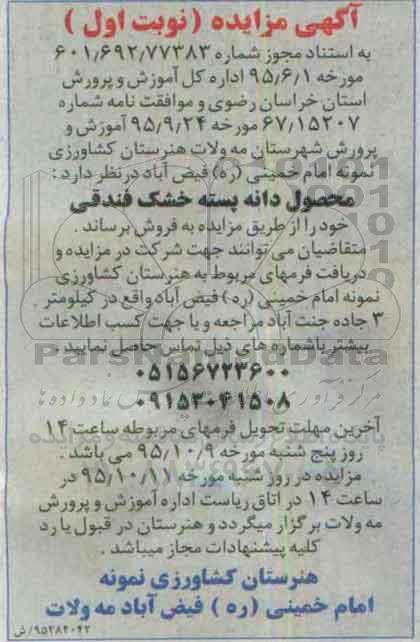 آگهی مزایده (نوبت اول)
به استناد مجوز شماره ۶۰۱٫۶۹۲٫۷۷۳۸۳
مورخه ۹۵٫۶٫۱ اداره کل آموزش و پرورش
استان خراسان رضوی و موافقت نامه شماره
۶۷٫۱۵۲۰۷ مورخه ۹۵٫۹٫۲۴ آموزش و
پرورش شهرستان مه ولات هنرستان کشاورزی
نمونه امام خمینی (ره) فیض آباد در نظر دارد :
محصول دانه پسته خشک فندقی
خود را از طریق مزایده به فروش برساند .
متقاضیان می توانند جهت شرکت در مزایده و
دریافت فرمهای مربوط به هنرستان کشاورزی
نمونه امام خمینی (ره) فیض آباد واقع در کیلومتر
۳ جاده جنت آباد مراجعه و یا جهت کسب اطلاعات
بیشتر با شماره های ذیل تماس حاصل نمایید .
ParsNamadData
۰۵۱۵۶۷۲۳۶۰۰
۰۹۱۵۳۰۴۱۵۰۸
آخرین مهلت تحویل فرمهای مربوطه ساعت ۱۴
روز پنج شنبه مورخه ۹۵٫۱۰٫۹ می باشد .
مزایده در روز شنبه مورخه ۹۵٫۱۰٫۱۱ در
ساعت ۱۴ در اتاق ریاست اداره آموزش و پرورش
مه ولات برگزار میگردد و هنرستان در قبول یا رد
کلیه پیشنهادات مجاز میباشد .
هنرستان کشاورزی نمونه
امام خمینی (ره) فیض آباد مه ولات
۹۵۲۸۴۰۴۲/ش